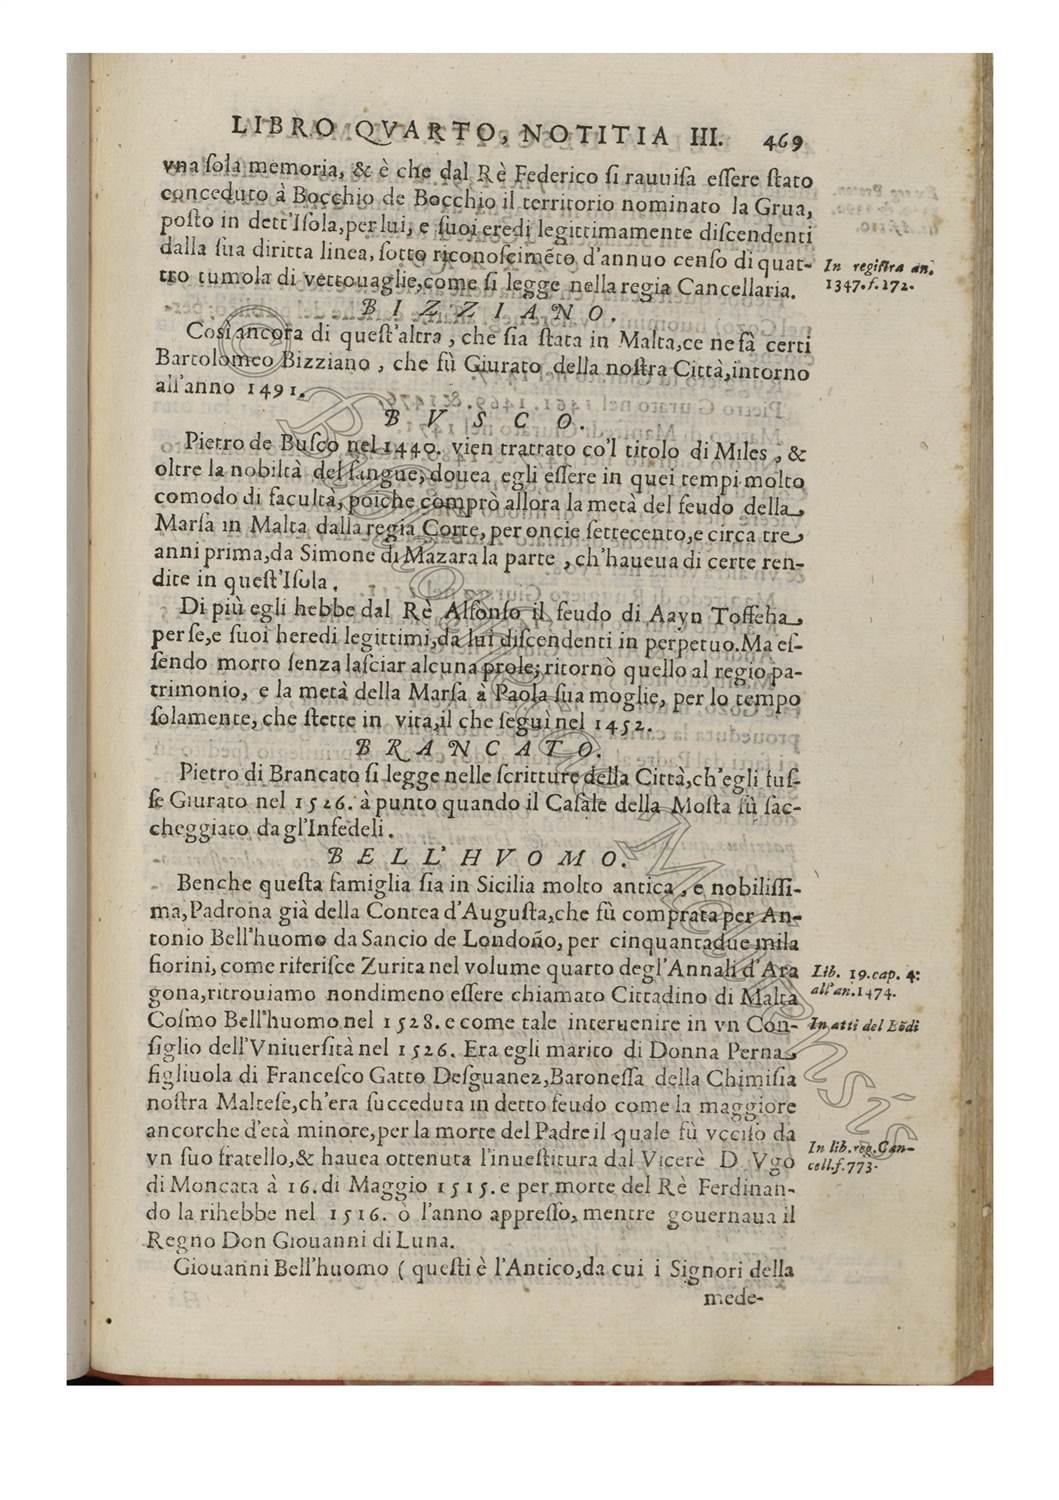 LIBRO QVARTO, NOTITIA III. 469
vna ſola memoria, & è che dal Rè Federico ſi rauuiſa eſſere ſtato
conceduto à Bocchio de Bocchio il territorio nominato la Grua,
poſto in dett'Iſola,per lui, e ſuoi eredi legittimamente diſcendenti
dalla ſua diritta linea, ſotto riconoſcimẽto d'annuo cenſo di quat-
tro tumola di vettouaglie,come ſi legge nella regia Cancellaria.
In regiſtra an.
1347.f.272.
BIZZIANO.
Così ancora di queſt'altra, che ſia ſtata in Malta,ce ne fà certi
Bartolomeo Bizziano, che fù Giurato della noſtra Città,intorno
all'anno 1491.
BVSCO.
Pietro de Buſco nel 1440. vien trattato co'l titolo di Miles, &
oltre la nobiltà del ſangue, douea egli eſſere in quei tempi molto
comodo di facultà, poiche comprò allora la metà del feudo della
Marſa in Malta dalla regia Corte, per oncie ſettecento,e circa tre
anni prima,da Simone di Mazara la parte, ch'haueua di certe ren-
dite in queſt'Iſola.
Di più egli hebbe dal Rè Alfonſo il feudo di Aayn Toffeha
per ſe,e ſuoi heredi legittimi,da lui diſcendenti in perpetuo.Ma eſ-
ſendo morto ſenza laſciar alcuna prole; ritornò quello al regio pa-
trimonio, e la metà della Marſa à Paola ſua moglie, per lo tempo
ſolamente, che ſtette in vita,il che ſeguì nel 1452.
BRANCATO.
Pietro di Brancato ſi legge nelle ſcritture della Città,ch'egli fuſ-
ſe Giurato nel 1526. à punto quando il Caſale della Moſta fù ſac-
cheggiato da gl'Infedeli.
BELL'HVOMO.
Benche queſta famiglia ſia in Sicilia molto antica, e nobiliſſi-
ma,Padrona già della Contea d'Auguſta,che fù comprata per An-
tonio Bell'huomo da Sancio de Londoño, per cinquantadue mila
fiorini, come riferiſce Zurita nel volume quarto degl'Annali d'Ara
gona,ritrouiamo nondimeno eſſere chiamato Cittadino di Malta
Coſmo Bell'huomo nel 1528. e come tale interuenire in vn Con-
ſiglio dell'Vniuerſità nel 1526. Era egli marito di Donna Perna
figliuola di Franceſco Gatto Deſguanez,Baroneſſa della Chimiſia
noſtra Malteſe,ch'era ſucceduta in detto feudo come la maggiore
ancorche d'età minore,per la morte del Padre il quale fù vcciſo da
vn ſuo fratello,& hauea ottenuta l'inueſtitura dal Vicerè D Vgo
di Moncata à 16. di Maggio 1515. e per morte del Rè Ferdinan-
do la rihebbe nel 1516. ò l'anno appreſſo, mentre gouernaua il
Regno Don Giouanni di Luna.
Lib. 19.cap. 4:
all'an.1474.
In atti del Bõdi
In lib.reg.Can-
cell.f.773.
Giouanni Bell'huomo ( queſti è l'Antico,da cui i Signori della
mede-
© Bibliotheca Melitensis